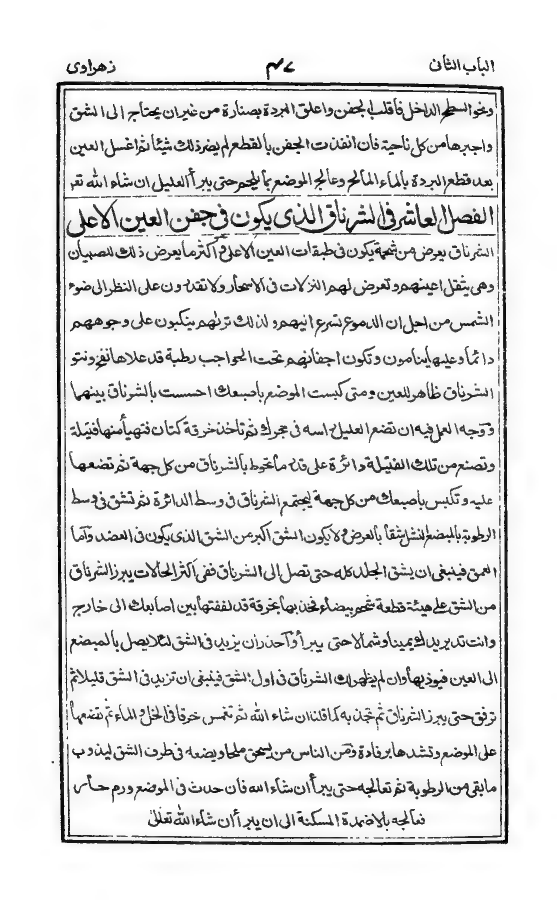 الباب الثانى ٤٧ زهراوى
ونحو السطح الداخل فأقلب الجفن واعلق البردة بصنارة من غيران يحتاج الى الشق
واجبرها من كل ناحية فان انفذت الجفن بالقطع لم يضر ذلك شيئا ثم اغسل العين
بعد قطع البردة بالماء المالح وعالج الموضع بما يلحم حتى يبرأ العليل ان شاء الله تعر
الفصل العاشر فى الشرناق الذى يكون فى جفن العين الاعلى
الشرناق يعرض من شحمة يكون فى طبقات العين الاعلى و أكثر ما يعرض ذلك للصبيان
وهى يثقل اعينهم وتعرض لهم النزلات فى الاسحار ولا تقدرون على النظر الى ضوء
الشمس من اجل ان الدموع تسرع اليهم ولذلك تريهم ينكبون على وجوههم
دائما وعليها ينامون وتكون اجفانهم تحت الحواجب رطبة قد علاها نفخ ونتو
الشرناق ظاهر للعين ومتى كبست الموضع باصبعك احسست بالشرناق بينهما
ووجه العمل فيه ان تضع العليل راسه فى حجرك ثم تاخذ خرقة كتان فتهيأ منها فتيلة
وتصنع من تلك الفتيلة دائرة على قدر ما تحوط بالشرناق من كل جهة ثم تضعها
عليه وتكبس باصبعك من كل جهة ليجتمع الشرناق فى وسط الدائرة ثم تشق فى وسط
الرطوبة بالمبضع النشل شقا بالعرض ولا يكون الشق اكبر من الشق الذى يكون فى الفصد وآما
العمق فينبغى ان يشق الجلد كله حتى تصل الى الشرناق ففى أكثر الحالات يبرز الشرناق
من الشق على هيئة قطعة شحم بيضاء فخذ بها بخرقة قد لففتها بين اصابعك الى خارج
وانت تدير يدك يمينا وشمالا حتى يبرأ وآحذر ان يزيد فى الشق لئلا يصل بالمبضع
الى العين فيوذيها وان لم يظهر لك الشرناق فى اول الشق فينبغى ان تزيد فى الشق قليلا ثم
ترفق حتى يبرز الشرناق ثم تجذبه كما قلنا ان شاء الله ثم تغمس خرقا فى الخل والماء ثم تضعها
على الموضع وتشدها برفادة ومن الناس من يسحق ملحا ويضعه فى طرف الشق ليذوب
ما بقى من الرطوبة ثم تعالجه حتى يبرأ ان شاء الله فان حدث فى الموضع ورم حار
فعالجه بالاضمدة المسكنة الى ان يبرأ ان شاء الله تعالى